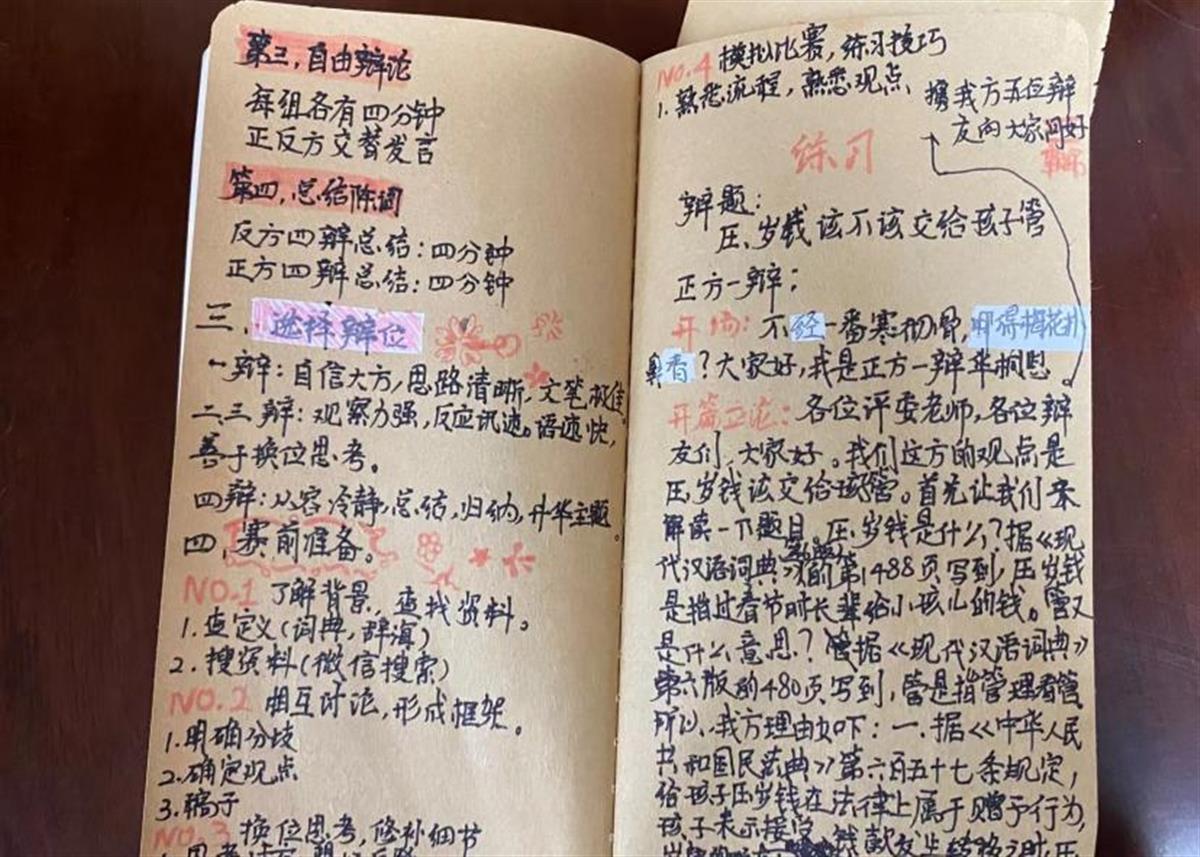 第三,自由辩论
每组各有四分钟
正反方交替发言
第四,总结陈词
反方四辩总结:四分钟
正方四辩总结:四分钟
三、选择辩位
一辩:自信大方,思路清晰,文笔极佳。
二、三辩:观察力强,反应讯速。语速快,
善于换位思考。
四辩:从容冷静,总结,归纳,升华主题。
四、赛前准备。
NO.1 了解背景,查找资料。
1.查定义(词典,辞海)
2.搜资料(微信搜索)
NO.2 相互讨论,形成框架。
1.明确分歧
2.确定观点
3.稿子
NO.3 换位思考,修补细节
NO.4 模拟比赛,练习技巧
1.熟悉流程,熟悉观点
携我方五位辩
友向大家问好
练习
辩题:
压岁钱该不该交给孩子管
正方一辩:
开场:不经一番寒彻骨,哪得梅花扑
鼻香?大家好,我是正方一辩
开篇立论:各位评委老师,各位辩
友们,大家好。我们这方的观点是
压岁钱该交给孩管。首先让我们来
解读一下题目。压岁钱是什么?据《现
代汉语词典》的第1488页写到,压岁钱
是指过春节时长辈给小孩儿的钱。管又
是什么意思?据《现代汉语词典》
第六版的480页写到,管是指管理看管
所以,我方理由如下:一.据《中华人民
共和国民法典》第六百五十七条规定,
给孩子压岁钱在法律上属于赠予行为,
孩子表示接受,钱款发生转移之时,压